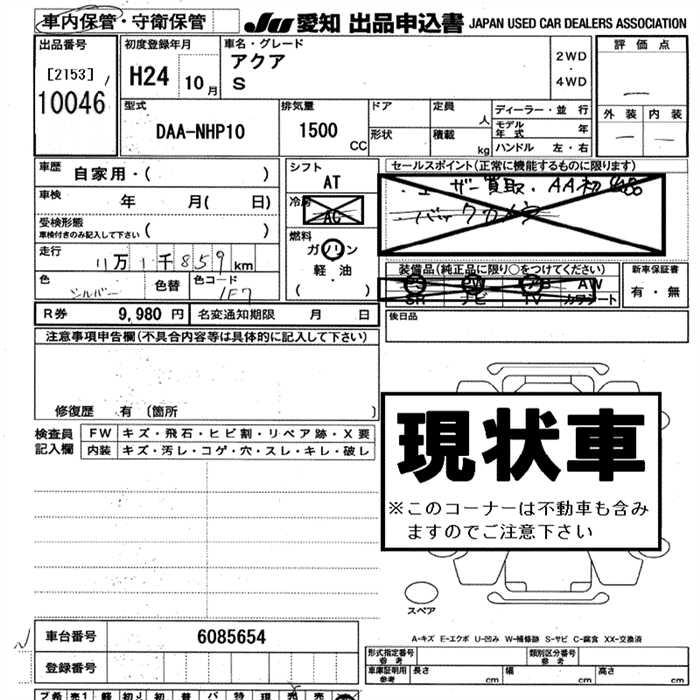 車内保管・守衛保管
JU 愛知 出品申込書 JAPAN USED CAR DEALERS ASSOCIATION
出品番号
[2153]
10046
初度登録年月
H24 10月
車名・グレード
アクア
S
2WD
・
4WD
評価点
外装 内装
型式
DAA-NHP10
排気量
1500 CC
ドア
形状
定員 人
積載 kg
ディーラー・並行
モデル年式 年
ハンドル 左・右
車歴 自家用・( )
車検 年 月( 日)
受検形態
車検付きのみ記入して下さい ( )
走行
11万1千859km
色 シルバー 色替 色コード 1F7
シフト
AT
冷房
AC
燃料
ガソリン
軽・油
( )
セールスポイント(正常に機能するものに限ります)
ユーザー買取、AA初出品
バックカメラ
装備品(純正品に限り○をつけてください)
PS PW AB AW
SR ナビ TV カワシート
新車保証書
有・無
R券 9,980 円 名変通知期限 月 日
後日品
注意事項申告欄(不具合内容等は具体的に記入して下さい)
修復歴 有 〔箇所 〕
検査員記入欄
FW キズ・飛石・ヒビ割・リペア跡・X要
内装 キズ・汚レ・コゲ・穴・スレ・キレ・破レ
現状車
※このコーナーは不動車も含み
ますのでご注意下さい
スペア
A-キズ E-エクボ U-凹み W-補修跡 S-サビ C-腐食 XX-交換済
車台番号 6085654
登録番号
形式指定番号
参考
類別区分番号
参考
車庫証明用
参考
長さ cm 幅 cm 高さ cm